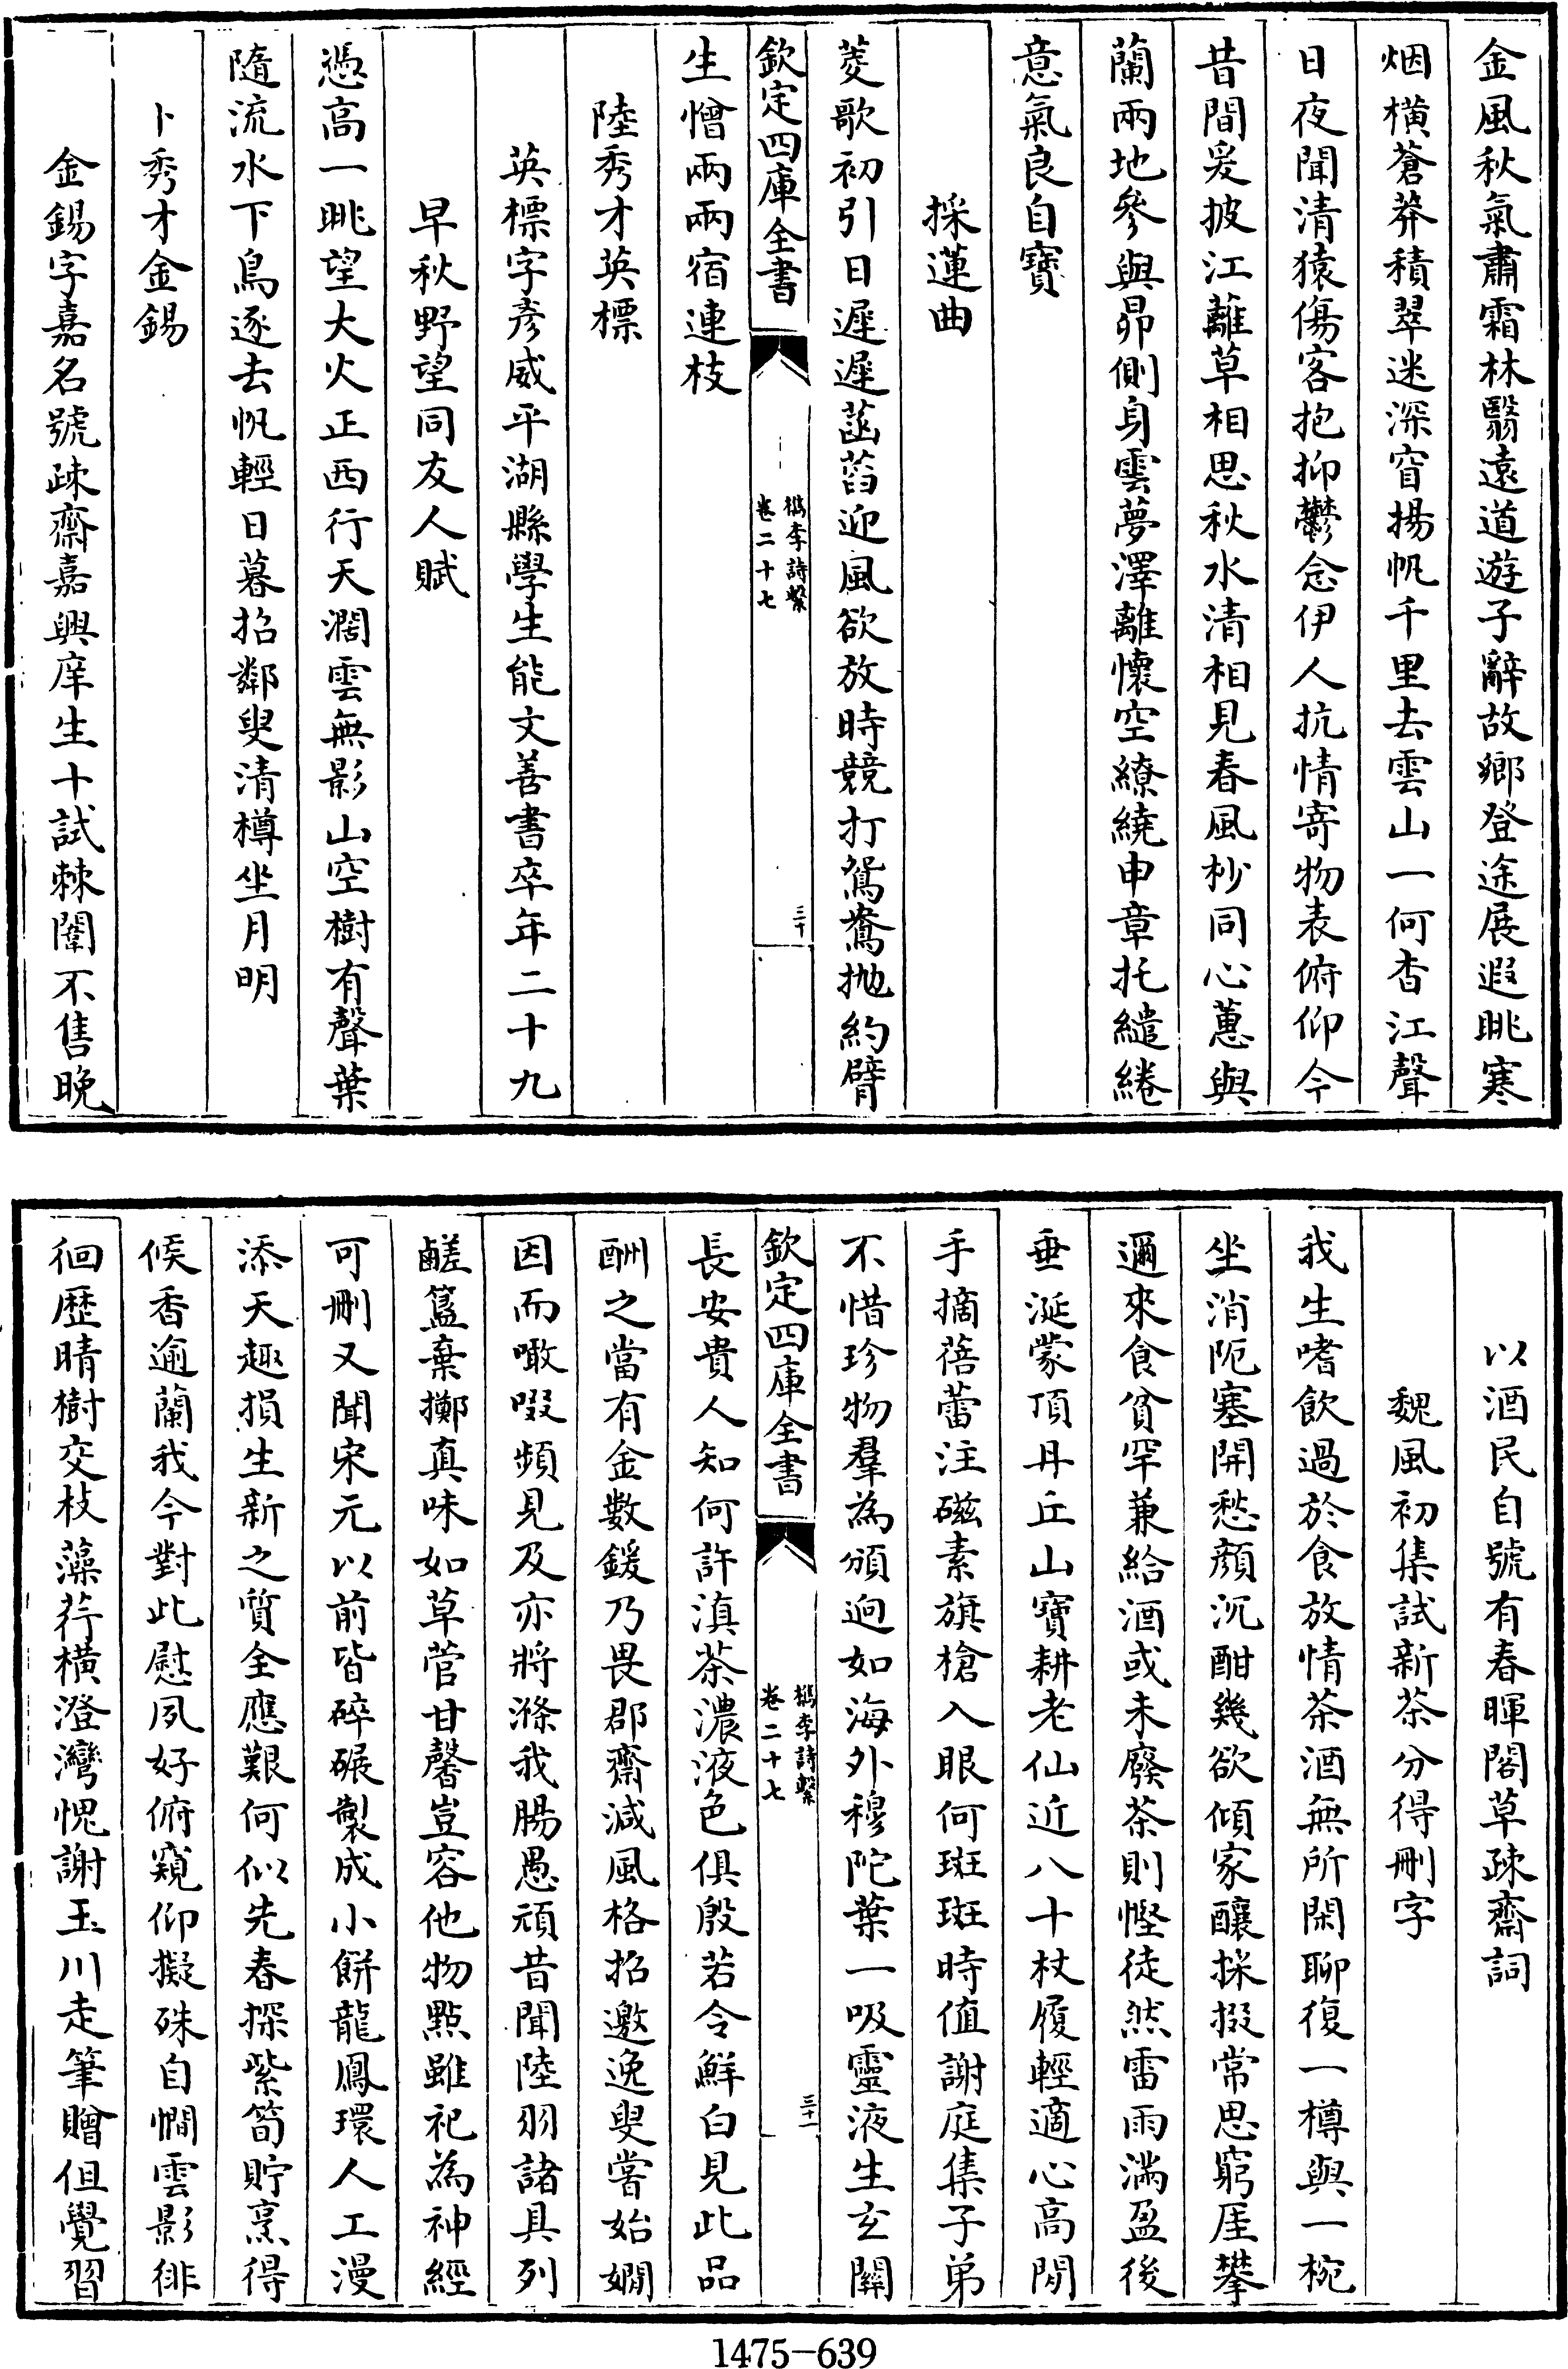 金風秋氣肅霜林翳遠道遊子辭故鄉登途展遐眺寒
烟橫蒼莽積翠迷深窅揚帆千里去雲山一何杳江聲
日夜聞清猿傷客抱抑鬱念伊人抗情寄物表俯仰今
昔間爰披江蘺草相思秋水清相見春風杪同心蕙與
蘭兩地參與昴側身雲夢澤離懷空繚繞申章托繾綣
意氣良自寶
採蓮曲
菱歌初引日遲遲菡萏迎風欲放時競打鴛鴦拋約臂
欽定四庫全書
檇李詩繫
卷二十七
三十
生憎兩兩宿連枝
陸秀才英標
英標字彥威平湖縣學生能文善書卒年二十九
早秋野望同友人賦
憑高一眺望大火正西行天濶雲無影山空樹有聲葉
隨流水下鳥逐去帆輕日暮招鄰叟清樽坐月明
卜秀才金錫
金錫字嘉名號疎齋嘉興庠生十試棘闈不售晚
以酒民自號有春暉閣草疎齋詞
魏風初集試新茶分得刪字
我生嗜飲過於食放情茶酒無所閑聊復一樽與一椀
坐消阨塞開愁顏沉酣幾欲傾家釀採掇常思窮厓攀
邇來食貧罕兼給酒或未廢茶則慳徒然雷雨滿盈後
垂涎蒙頂丹丘山寶耕老仙近八十杖履輕適心高閒
手摘蓓蕾注磁素旗槍入眼何斑斑時值謝庭集子弟
不惜珍物羣為頒逈如海外穆陀葉一吸靈液生玄關
欽定四庫全書
檇李詩繫
卷二十七
三十一
長安貴人知何許滇茶濃液色俱殷若令鮮白見此品
酬之當有金數鍰乃畏郡齋減風格招邀逸叟嘗始嫺
因而噉啜頻見及亦將滌我腸愚頑昔聞陸羽諸具列
鹺簋棄擲真味如草菅甘馨豈容他物點雖祀為神經
可刪又聞宋元以前皆碎碾製成小餅龍鳳環人工漫
添天趣損生新之質全應艱何似先春探紫筍貯烹得
候香逾蘭我今對此慰夙好俯窺仰擬殊自憪雲影徘
徊歷晴樹交枝藻荇橫澄灣愧謝玉川走筆贈但覺習
1475-639